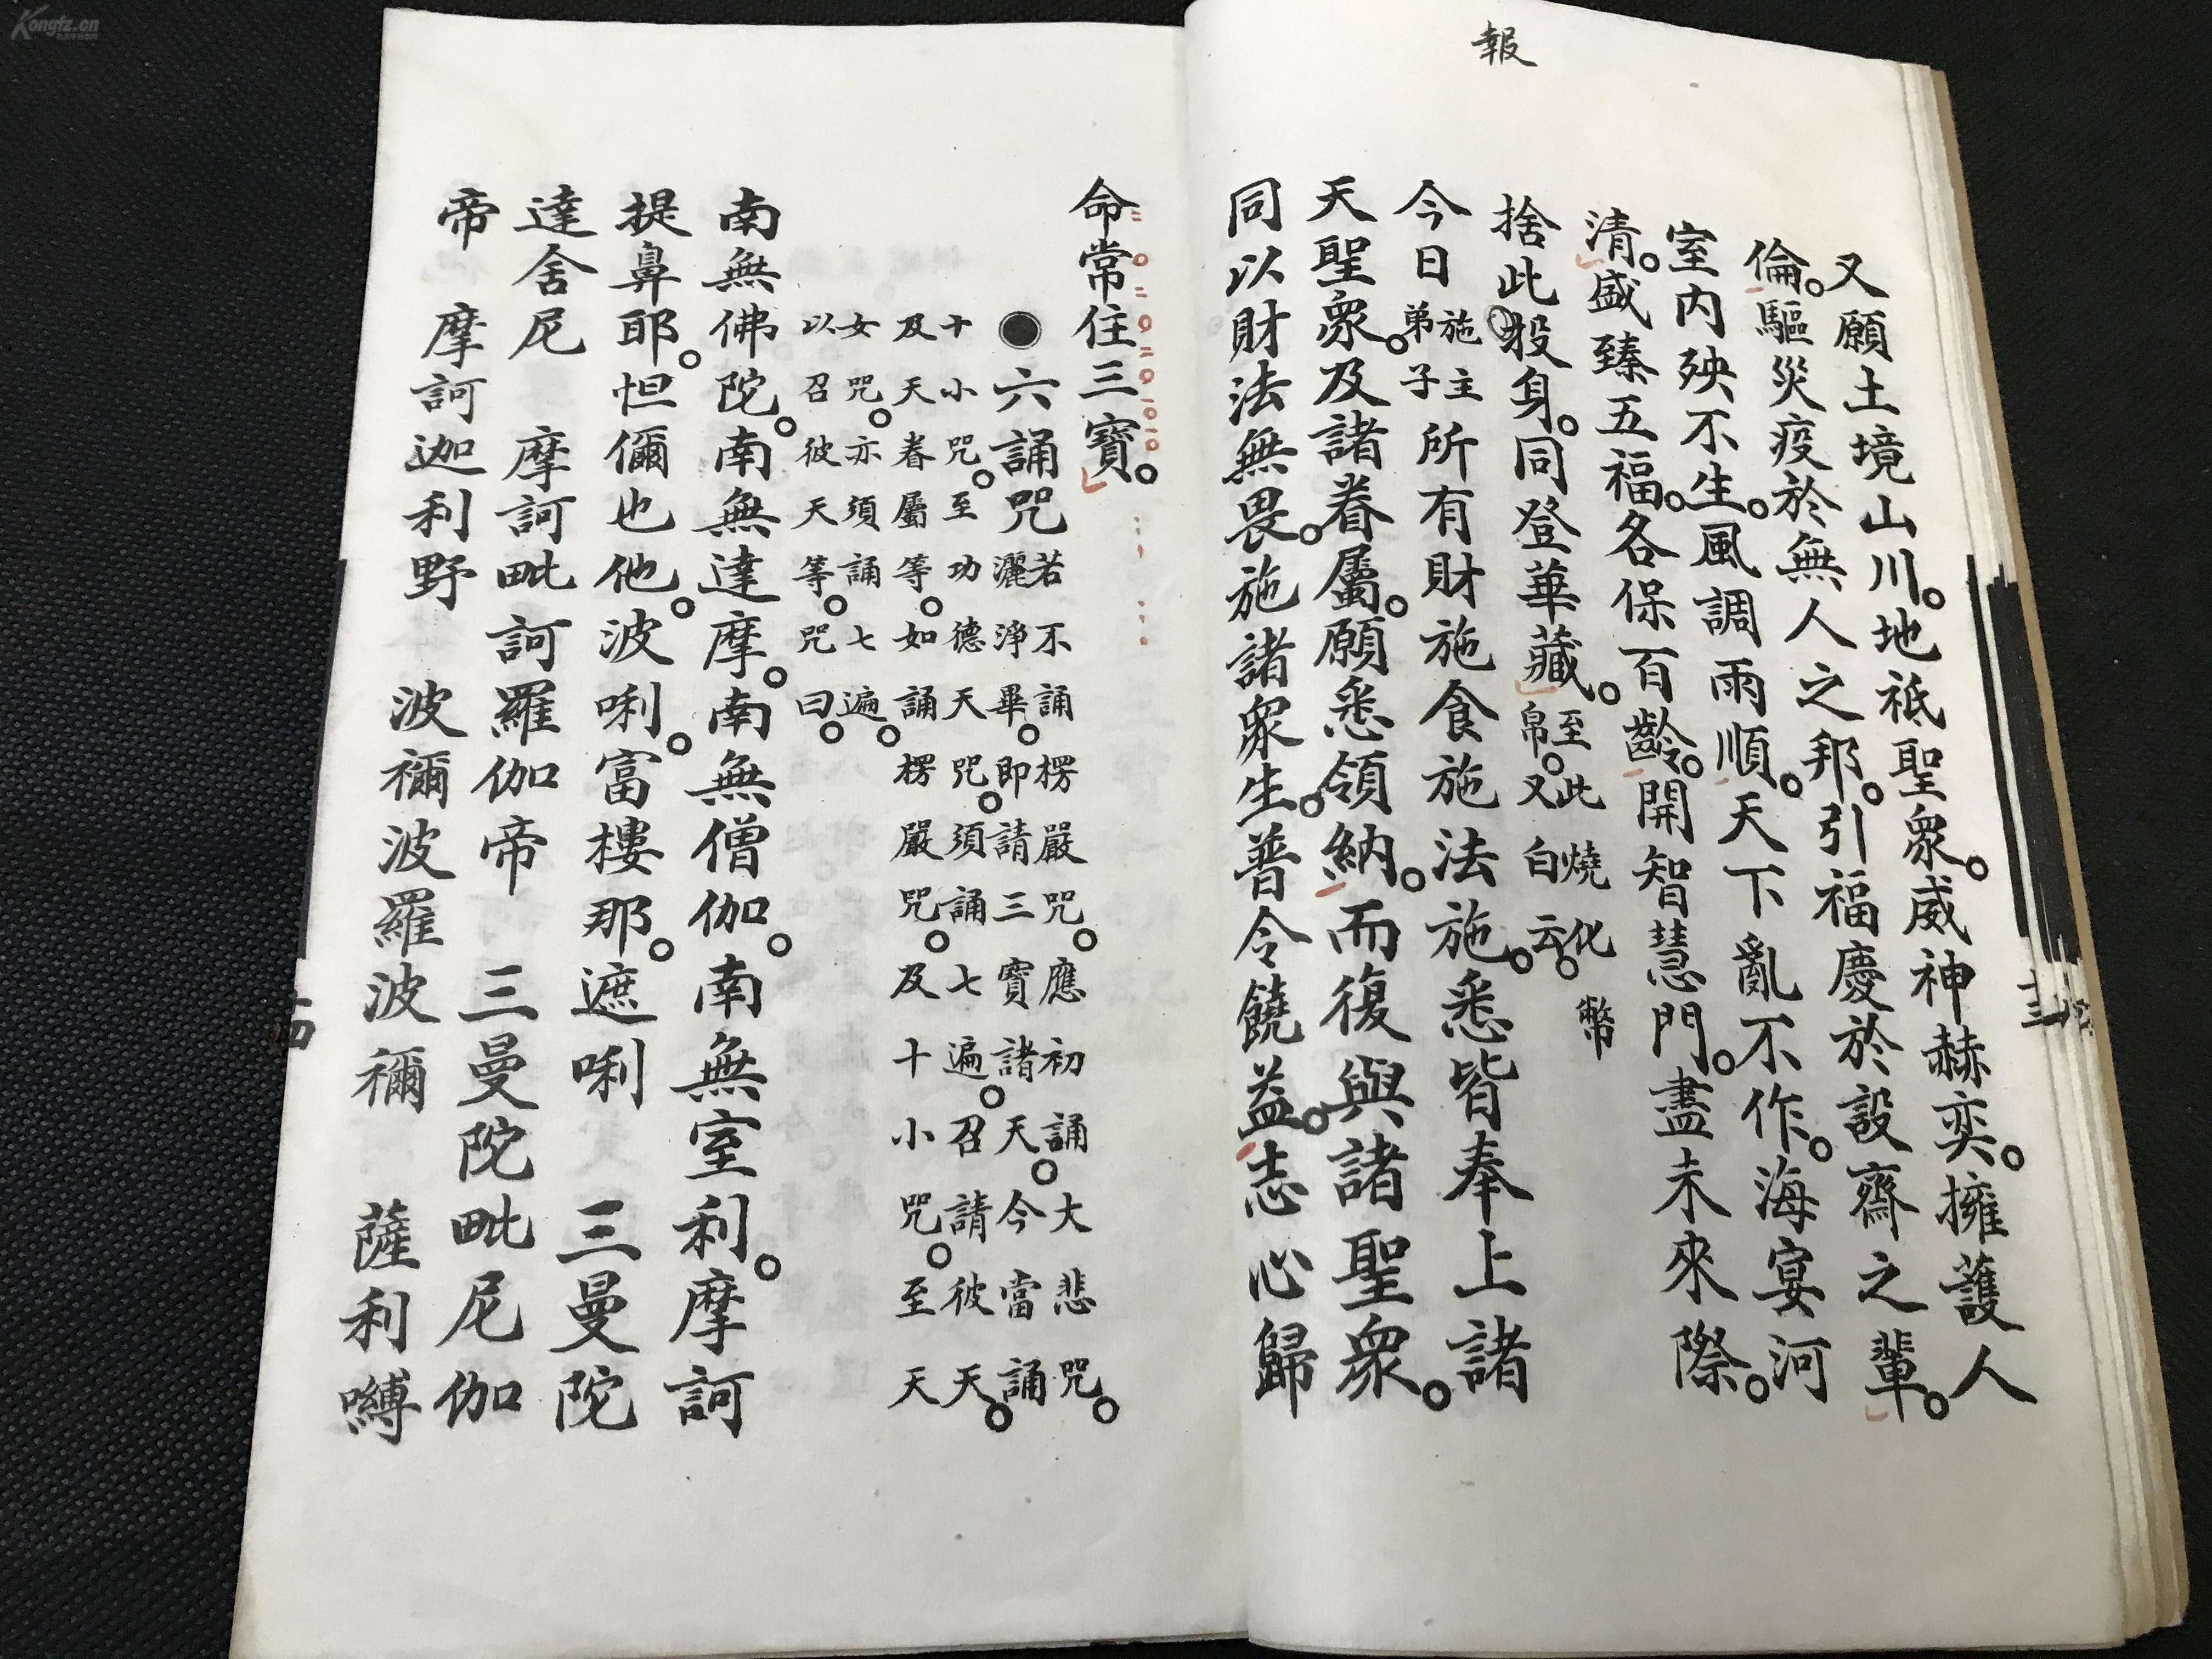 報
又願土境山川。地祇聖衆。威神赫奕。擁護人
倫。驅災疫於無人之邦。引福慶於設齋之輩。
室内殃不生。風調雨順。天下亂不作。海宴河
清。盛臻五福。各保百齡。開智慧門。盡未來際。
捨此身。同登華藏。
至此燒化幣
帛。又白云。
今日施主弟子所有財施食施法施。悉皆奉上諸
天聖衆。及諸眷屬。願悉領納。而復與諸聖衆。
同以財法無畏。施諸衆生。普令饒益。志心歸
命常住三寶。
●六誦咒
若不誦楞嚴咒。應初誦。大悲咒。
灑淨畢。即請三寶諸天。今當誦
十小咒。至功德天咒。須誦七遍。召請彼天。
及天眷屬等。如誦楞嚴咒。及十小咒。至天
女咒。亦須誦七遍。
以召彼天等。咒曰。
南無佛陀。南無達摩。南無僧伽。南無室利。摩訶
提鼻耶。怛儞也他。波唎。富樓那。遮唎 三曼陀
達舍尼 摩訶毗訶羅伽帝 三曼陀毗尼伽
帝 摩訶迦利野 波禰波羅波禰 薩利嚩
Kongfz.cn